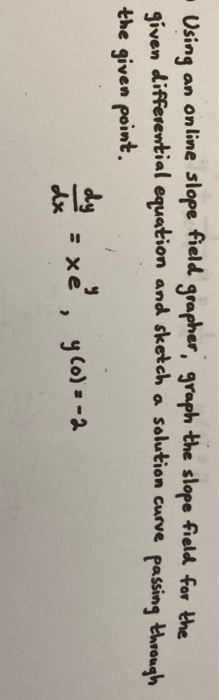 Using an online slope field grapher, graph the slope field for the
given differential equation and sketch a solution curve passing through
the given point.
dy/dx = xe^y, y(0) = -2